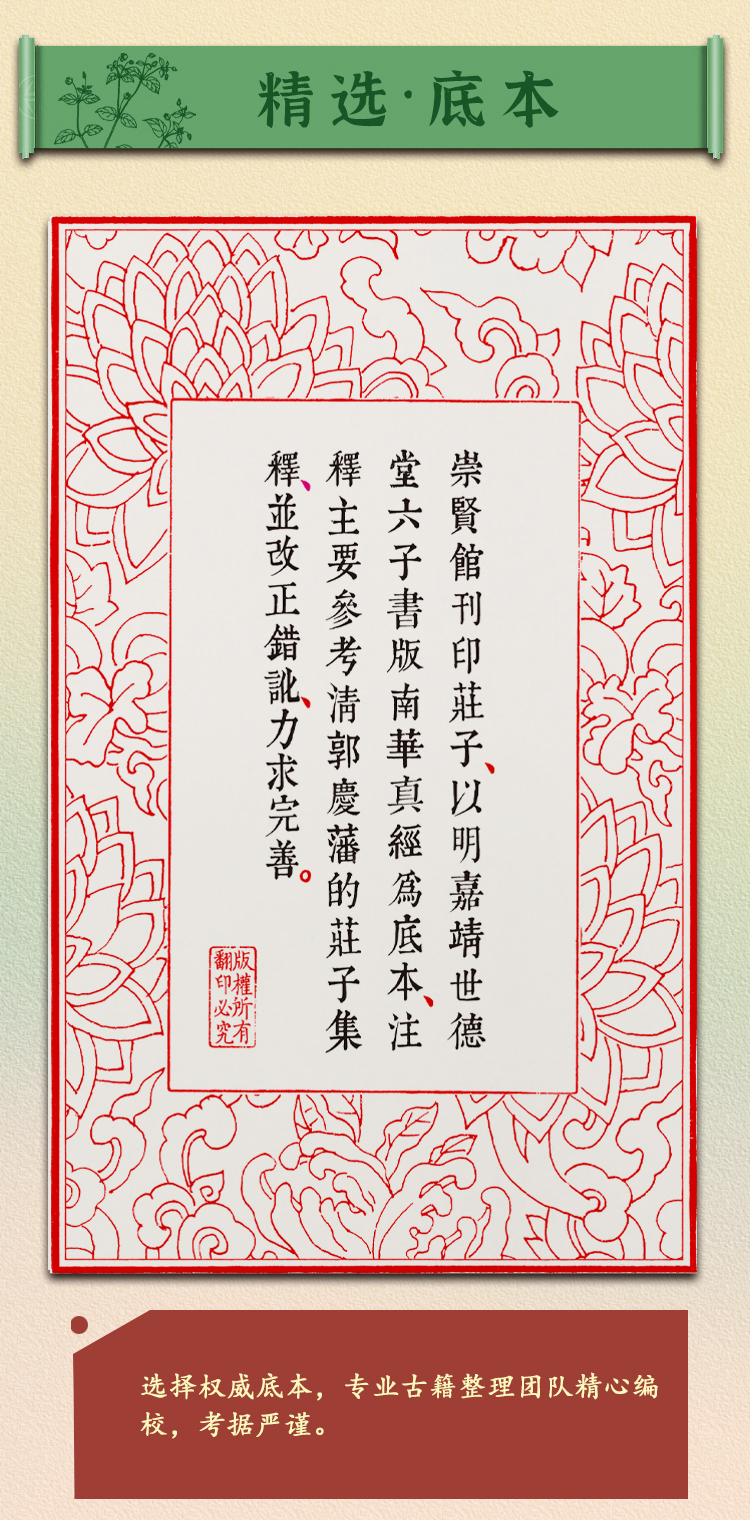 精选·底本
崇賢館刊印莊子、以明嘉靖世德
堂六子書版南華真經爲底本、注
釋主要參考清郭慶藩的莊子集
釋、並改正錯訛、力求完善。
版權所有
翻印必究
选择权威底本，专业古籍整理团队精心编
校，考据严谨。